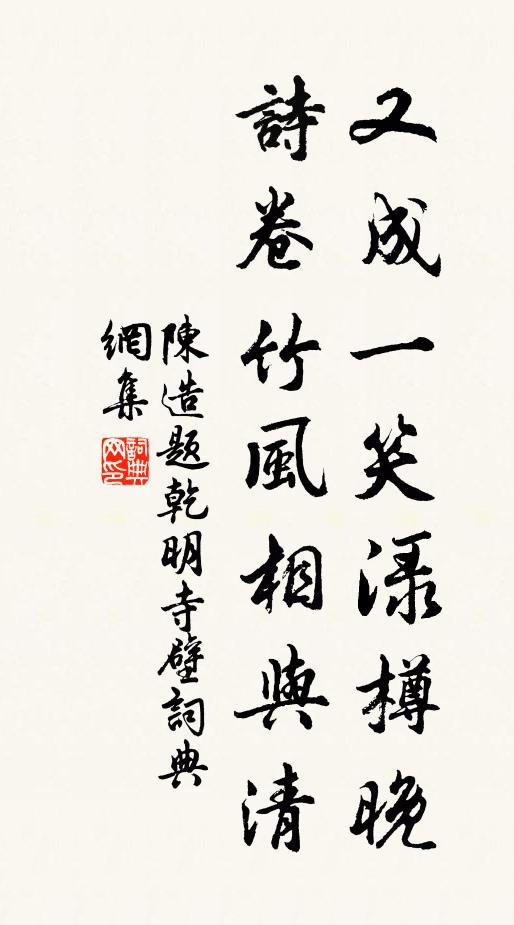 又成一笑渌樽晚
詩卷竹風相與清
陳造題乾明寺壁詞典
網集
詞典網印